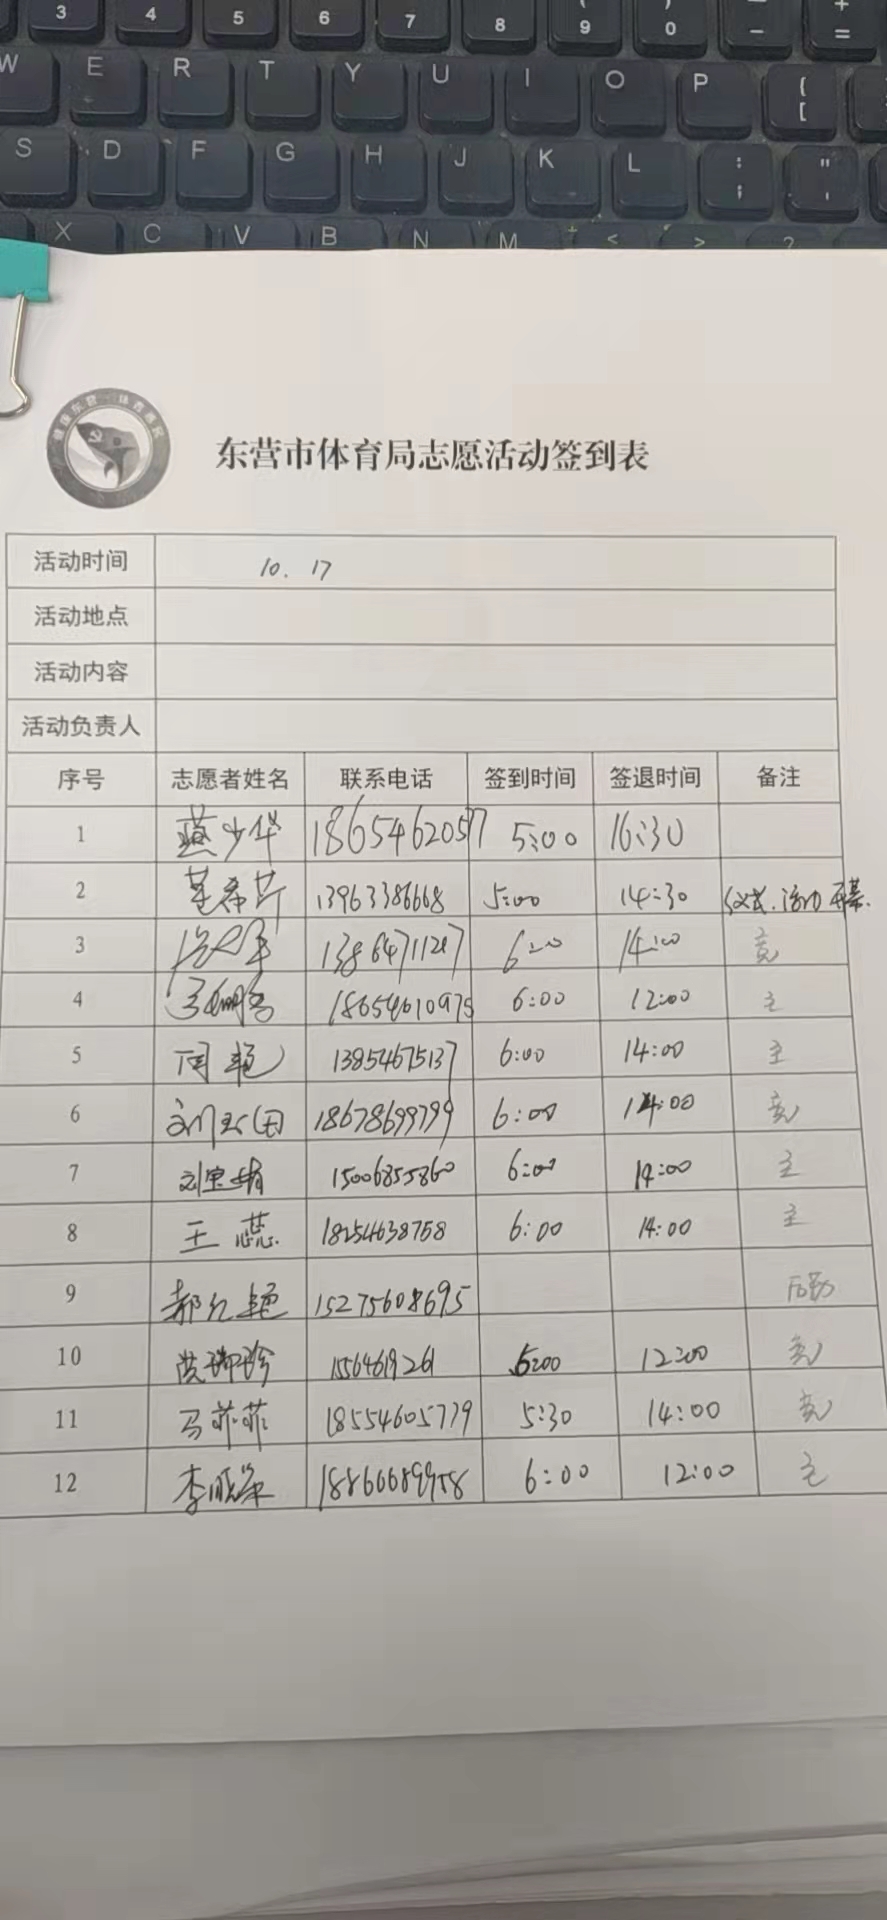 3 4 5 6 7 8 ( 9 ) 0 — - + =
W E R T Y U I O P { [
S D F G H J K L : ; " '
X C V B N M < > ?
东营市体育局志愿活动签到表
活动时间 10. 17
活动地点
活动内容
活动负责人
序号 志愿者姓名 联系电话 签到时间 签退时间 备注
1 燕少华 18654620577 5:00 16:30
2 董希芹 13963386668 5:00 14:30 仪式.活动 开幕.
3 13864711207 6:00 14:00 竞
4 18654610975 6:00 12:00 主
5 周艳 13854675137 6:00 14:00 主
6 18678699799 6:00 14:00 竞
7 刘宝娟 15006855860 6:00 14:00 主
8 王蕊 18254638758 6:00 14:00 主
9 郝红艳 15275608695 后勤
10 1556461926 5:00 12:00 竞
11 马菲菲 18554605779 5:30 14:00 竞
12 李晓 18866689958 6:00 12:00 主